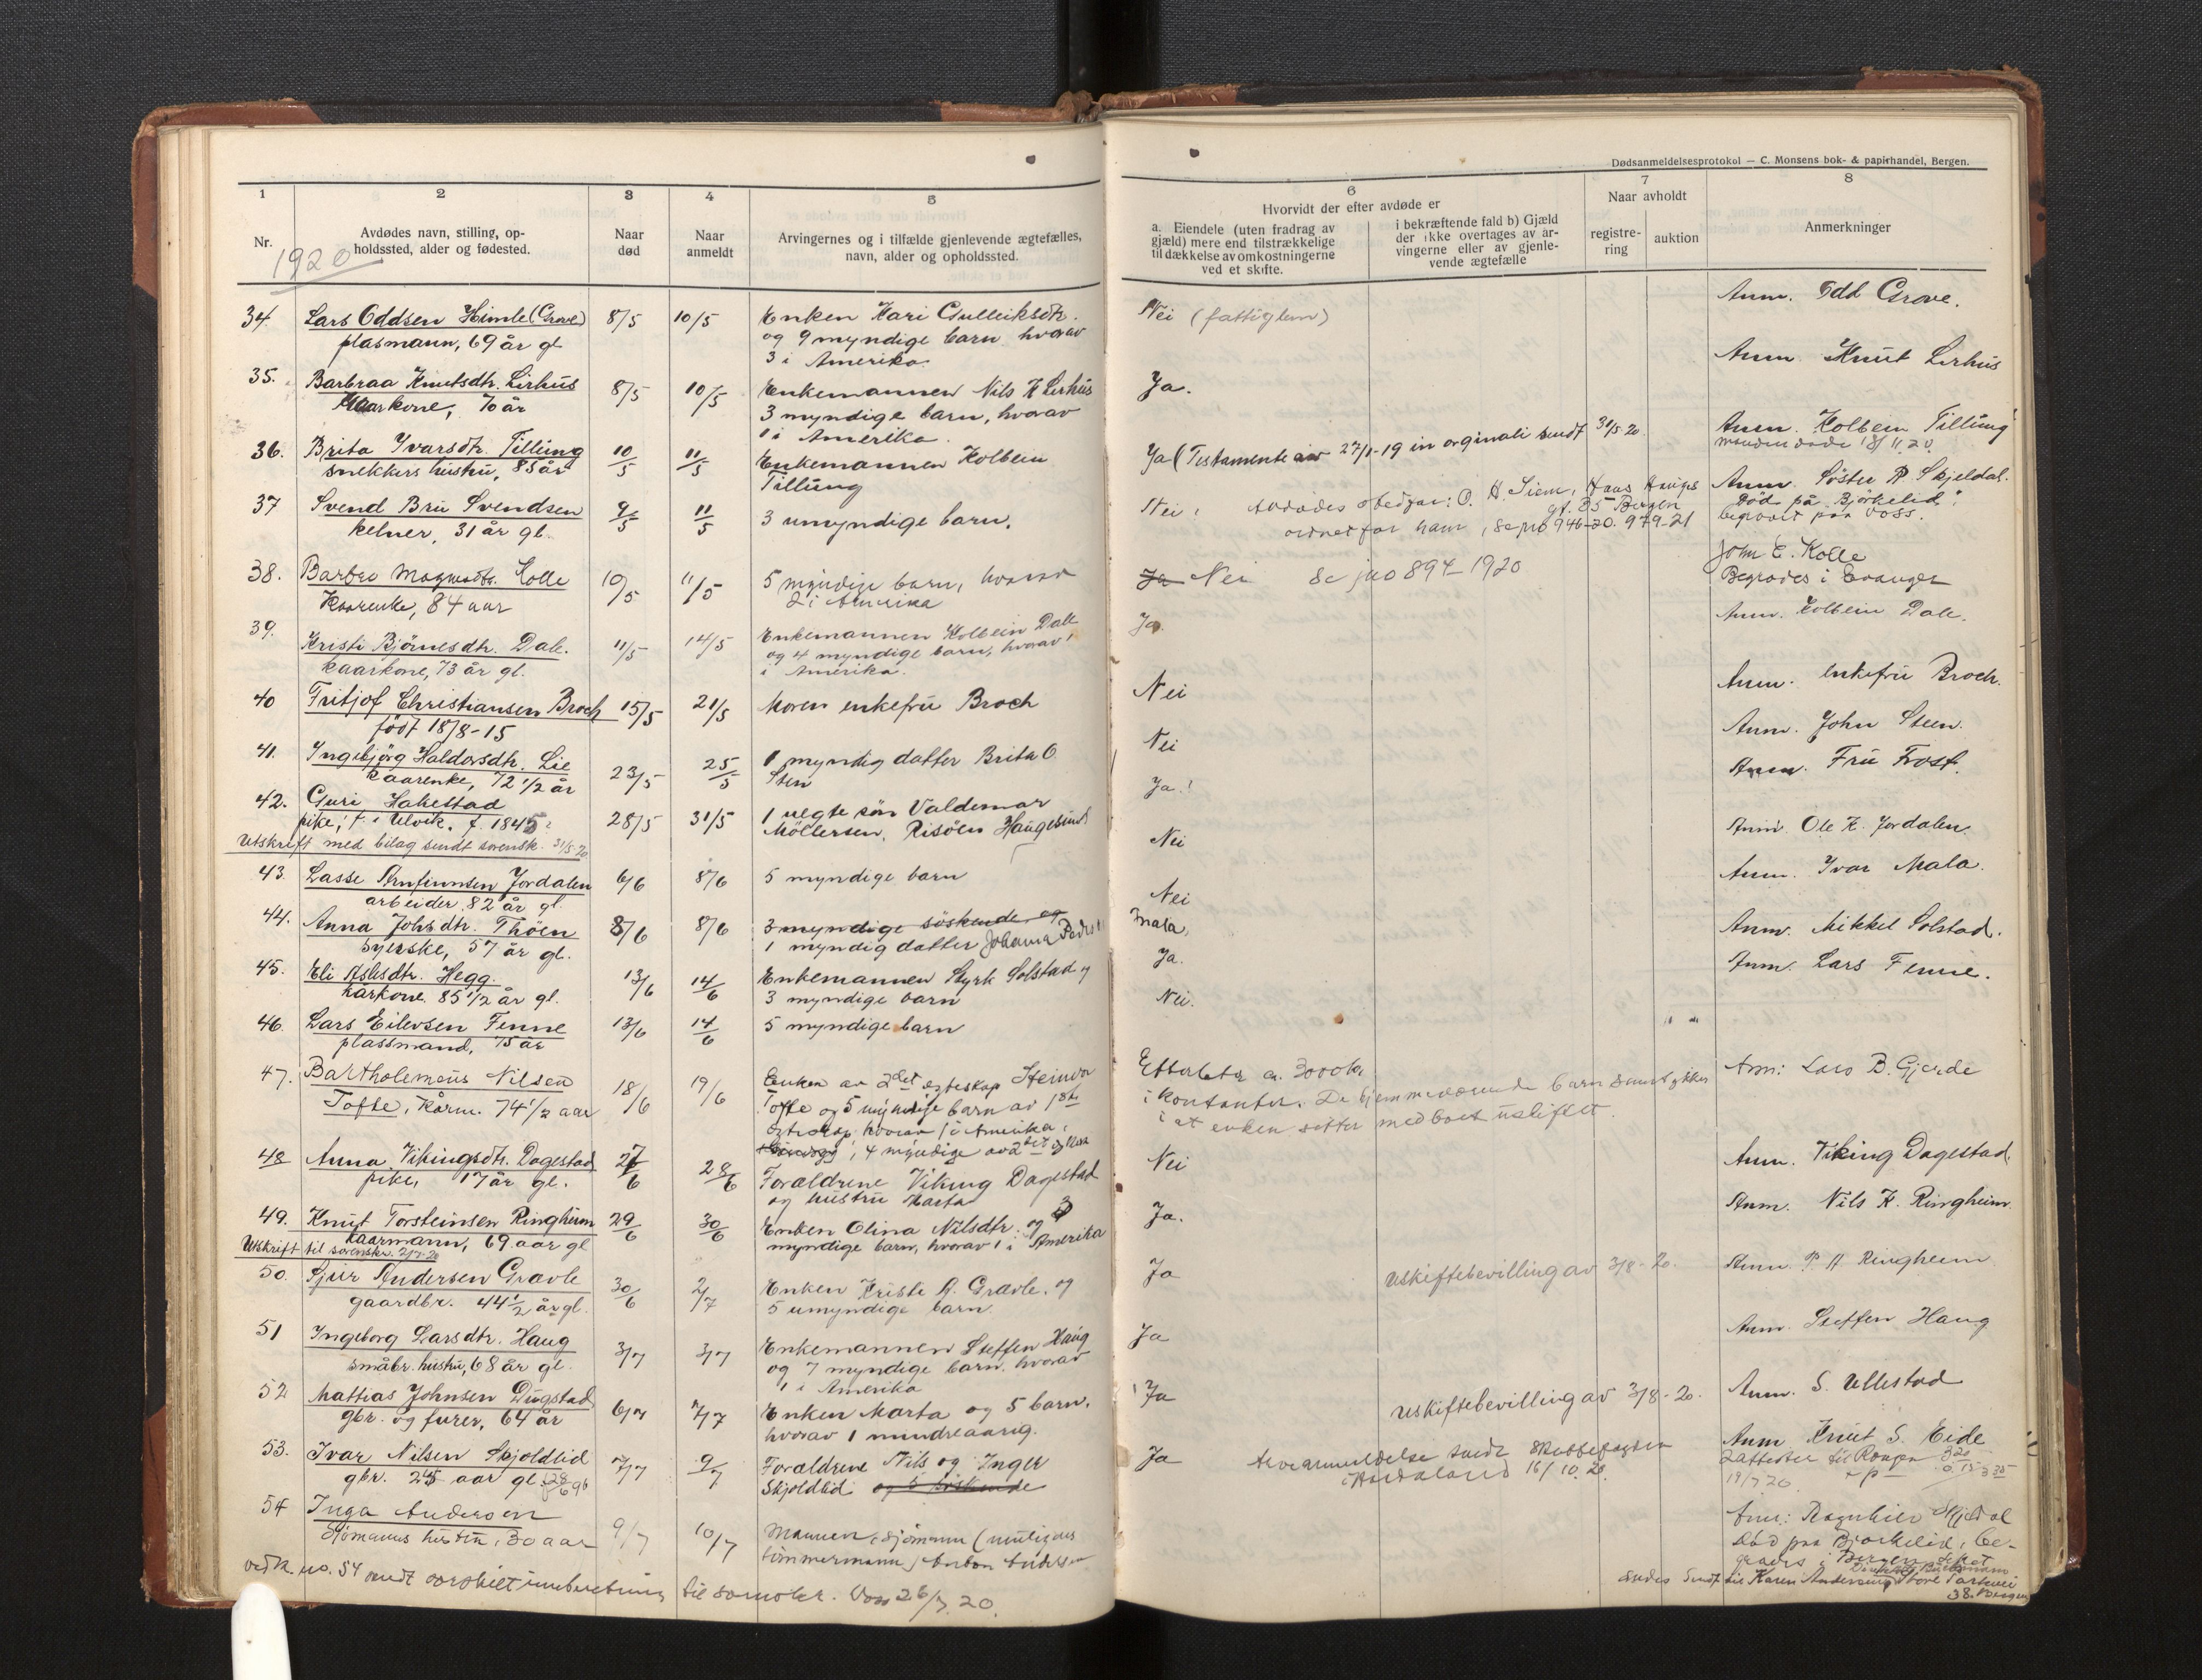 Dødsanmeldelsesprotokol — C. Monsens bok- & papirhandel, Bergen.
1 2 3 4 5
Nr.
1920
Avdødes navn, stilling, op-
holdssted, alder og fødested.
Naar
død
Naar
anmeldt
Arvingernes og i tilfælde gjenlevende ægtefælles,
navn, alder og opholdssted.
6 7 8
Hvorvidt der efter avdøde er
a. Eiendele (uten fradrag av
gjæld) mere end tilstrækkelige
til dækkelse av omkostningerne
ved et skifte.
i bekræftende fald b) Gjæld
der ikke overtages av ar-
vingerne eller av gjenle-
vende ægtefælle
Naar avholdt
registre-
ring
auktion
Anmerkninger
34 Lars Oddsen Himle (Grove) 8/5 10/5 Enken Kari Gulleiksdtr.
plasmann, 69 år gl
og 9 myndige barn hvorav
3 i Amerika.
Nei (fattiglem)
Anm. Odd Grove.
35. Barbraa Knutsdtr. Lirhus 8/5 10/5 Enkemannen Nils K Lirhus
Kaarkone, 70 år
3 myndige barn, hvorav
1 i Amerika.
Ja.
Anm. Knut Lirhus
36. Brita Ivarsdtr. Tillung 10/5 11/5 Enkemannen Kolbein
snekkers hustru, 83 år
Tillung
Ja (Testamente av 27/1-19 in orginali sendt 31/5 20.
Anm. Kolbein Tillung
manden døde 18/11 20.
37 Svend Bru Svendsen 9/5 11/5 3 umyndige barn.
kelner, 31 år gl.
Nei
ordnet for ham, se jno 946-20. 979-21
Anm. Søster R Skjeldal.
Død på Bjørkelid.
begravet paa Voss.
38. Barbro Magnusdtr. Kolle 10/5 11/5 5 myndige barn, hvorav
Kaarenke, 84 aar
2 i Amerika
Ja Nei Se jno 894-1920
John E. Kolle
Begraves i Evanger
39. Kristi Bjørnesdtr. Dale. 11/5 14/5 Enkemannen Kolbein Dale
kaarkone, 73 år gl.
og 4 myndige barn, hvorav 1
i Amerika.
Ja.
Anm. Kolbein Dale.
40 Fritjof Christiansen Broch 15/5 21/5 Moren enkefru Broch
født 18/8-15
Nei
Anm. enkefru Broch.
41. Ingebjørg Haldorsdtr. Lie 23/5 25/5 1 myndig datter Brita O.
kaarenke, 72 1/2 år
Sten
Nei
Anm. John Steen.
42. Guri Hakestad 28/5 31/5 1 uegte søn Valdemar
pike, f. i Ulvik. f. 1845
Møllersen, Risøen Haugesund
Utskrift med bilag sendt sorensk. 31/5-20
Ja.
Anm. Fru Frost.
43. Lasse Arnfinnsen Jordalen 6/6 8/6 5 myndige barn
arbeider 82 år gl.
Nei
Anm. Ole K. Jordalen.
44. Anna Johsdtr. Thöen 8/6 8/6 3 myndige söskende og
syerske, 57 år gl.
1 myndig datter Johanna
Nei
Mala,
Anm. Ivar Mala.
45. Eli Aslesdtr. Hegg. 13/6 14/6 Enkemannen Styrk Solstad og
karkone. 85 1/2 år gl.
3 myndige barn
Ja.
Anm. Mikkel Solstad.
46. Lars Eilevsen Fenne 13/6 14/6 5 myndige barn
plassmand, 75 år
Nei.
Anm. Lars Fenne.
47. Bartholemeus Nilsen 18/6 19/6 Enken av 2det egteskap Steinvor
Tofte, kårm. 74 1/2 aar
Tofte og 5 myndige barn av 1ste
egteskap hvorav 1 i Amerika,
4 myndige av 2det
Efterlater ca. 3000 kr
i kontanter. De hjemmeværende barn samtykker
i at enken sitter med boet uskiftet.
Anm: Lars B. Gjerde
48 Anna Vikingsdtr. Dagestad 27/6 28/6 Foraldrene Viking Dagestad
pike, 17 år gl.
og hustru Marta
Nei
Anm. Viking Dagestad
49. Knut Torsteinsen Ringheim 29/6 30/6 Enken Olina Nilsdtr. og 3
kaarmann, 69 aar gl
myndige barn, hvorav 1 i Amerika
Utskrift til sorenskr. 2/7-20
Ja.
Anm. Nils K. Ringheim.
50. Sjur Andersen Gravle 30/6 2/7 Enken Kristi G. Gravle. og
gaardbr. 44 1/2 år gl.
5 umyndige barn.
Ja
Uskiftebevilling av 3/8-20.
Anm P H Ringheim
51 Ingeborg Larsdtr. Haug 3/7 3/7 Enkemannen Steffen Haug
småbr. hustru, 68 år gl.
og 7 myndige barn. hvorav
1 i Amerika
Ja
Anm. Steffen Haug
52 Mattias Johnsen Dugstad 6/7 7/7 Enken Marta og 5 barn.
gbr. og furer, 64 år
hvorav 1 mindreaarig.
Ja
Uskiftebevilling av 3/8-20.
Anm. S. Ullestad
53. Ivar Nilsen Skjoldlid 7/7 9/7 Foraldrene Nils og Inger
gbr. 24 aar gl.
Skjoldlid og 6 söskende
Ja
Arveanmeldelse sendt Skattefogden
i Hordaland 16/10. 20.
Anm Knut S. Eide
19/7 20
54 Inga Andersen 9/7 10/7 Mannen, sjømann (muligens
Sjømanns hustru, 30 aar
tømmermann) Anton Andersen
Anm: Ragnhild Skjeldal
Død paa Bjørkelid, be-
graves i Bergen
vedk. no. 54 sendt særskilt innberetning til samorkr. Voss 26/7. 20.
Sendt til Karen Andersen, Store
38. Bergen